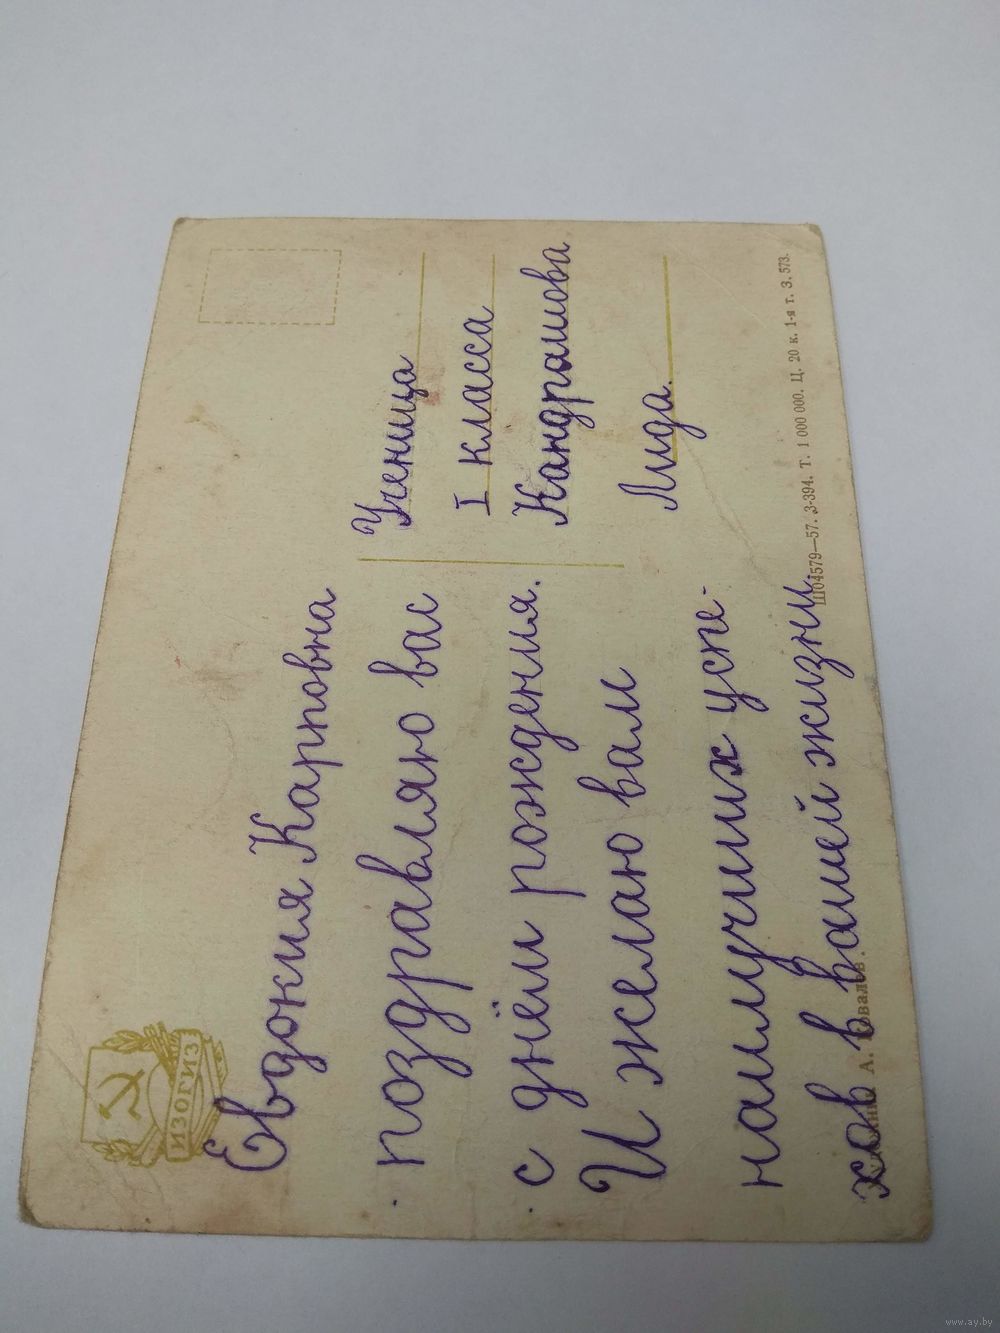 ИЗОГИЗ
Евдокия Карповна
поздравляю вас
с днём рождения.
И желаю вам
наилучших успе-
хов в вашей жизни.
Ученица
I класса
Кандрашова
Лида.
Художник А. Ковалёв.
Ш04579—57. З-394. Т. 1 000 000. Ц. 20 к. 1-я т. З. 573.
www.ay.by